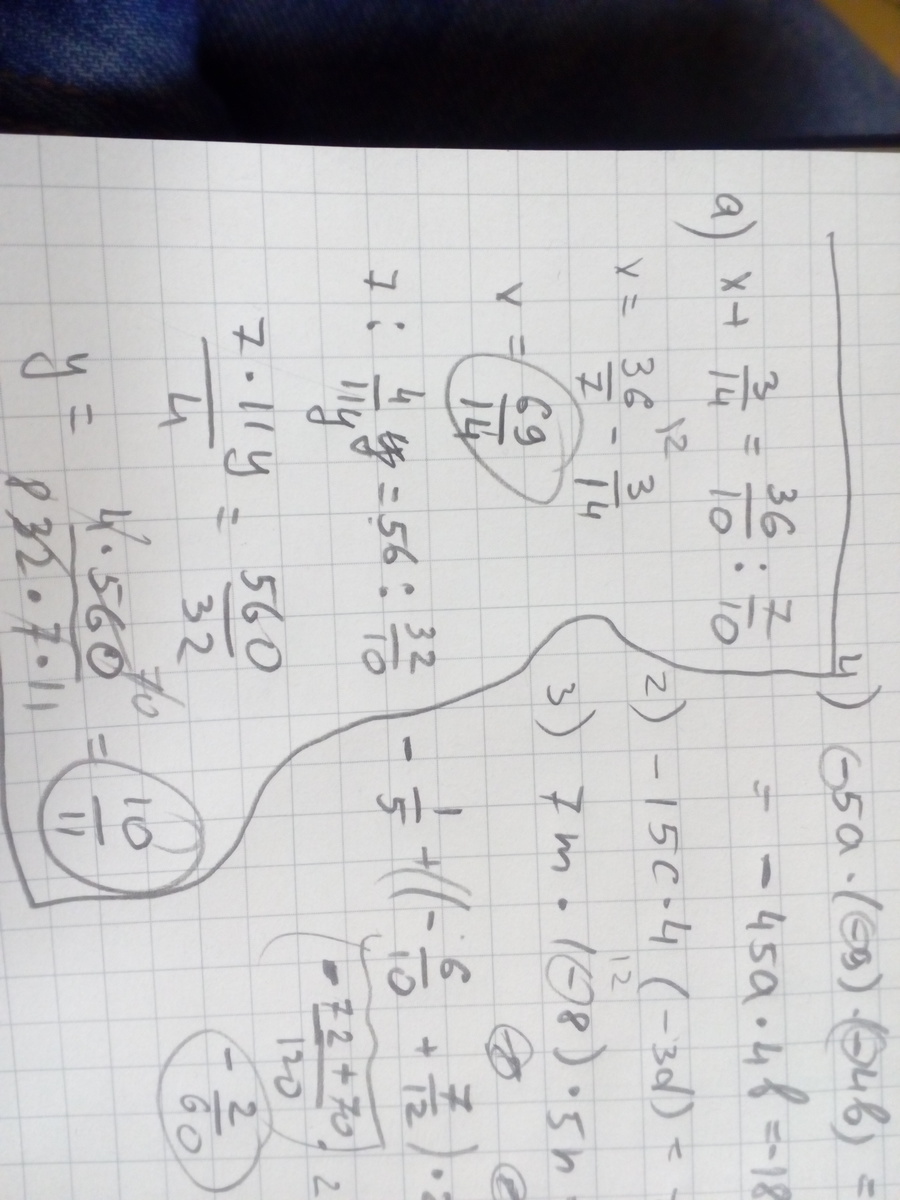 a) x + 3/14 = 36/10 : 7/10
x = 36/7 - 3/14
12
x = 69/14
7 : 4/11y = 56 : 32/10
7·11y/4 = 560/32
y = 4·560/32·7·11 = 10/11
70
8
4) -5a·(-9)·(-4b) =
= -45a·4b = -18
2) -15c·4(-3d) = -
12
3) 7m·(-8)·5n
- 1/5 + ((- 6/10 + 7/12)·
-72+70/120 ·
- 2/60